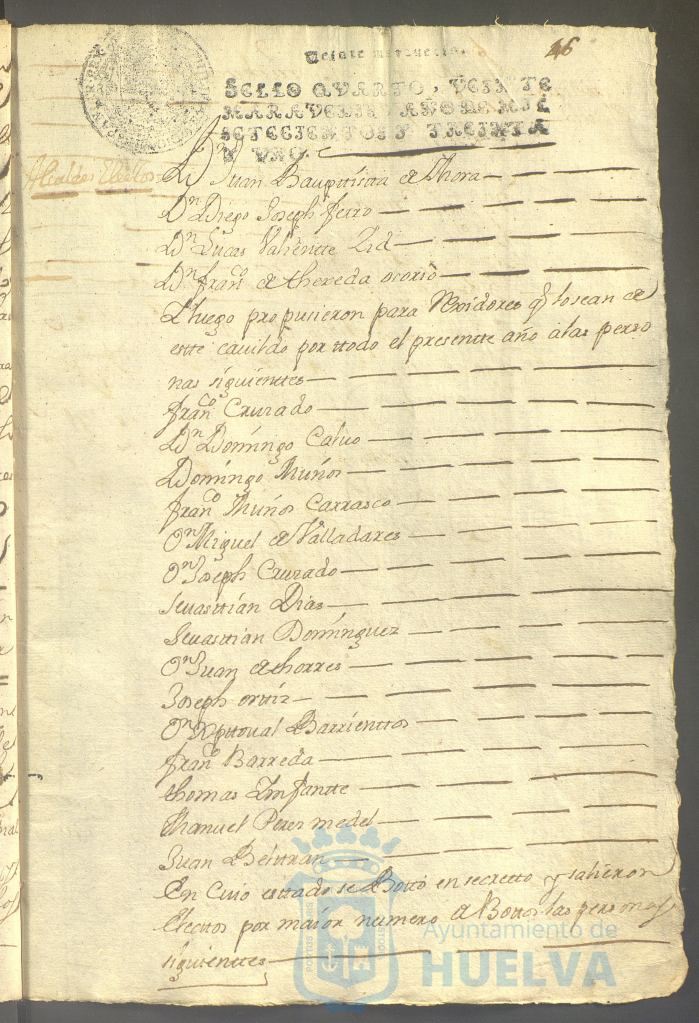 26
Veinte maravedis.
SELLO QVARTO, VEINTE
MARAVEDIS, AÑO DE MIL
SETECIENTOS Y TREINTA
Y VNO.
Alcaldes Electos
Dn Juan Bauptistta de Mora
Dn Diego Joseph
Dn Lucas Valientte Zid
Dn Franco de Hereda osorio
E luego propusieron para Rexidores q lo sean de
estte cauildo por ttodo el presentte año a las perso
nas siguienttes
Franco Cruzado
Dn Domingo Caluo
Domingo Muños
Franco Muños Carrasco
Dn Miguel de Valladares
Dn Joseph Cruzado
Seuasttián Dias
Seuasttian Domínguez
Dn Juan de thorres
Joseph orttiz
Dn Xpttoual Barrienttos
Franco Barreda
thomas Infantte
Manuel Perez medel
Juan Beltrán
En Cuio esttado se Bottó en secretto y salieron
Electtos por maior numero de Bottos las personas
siguienttes
Ayuntamiento de
HUELVA